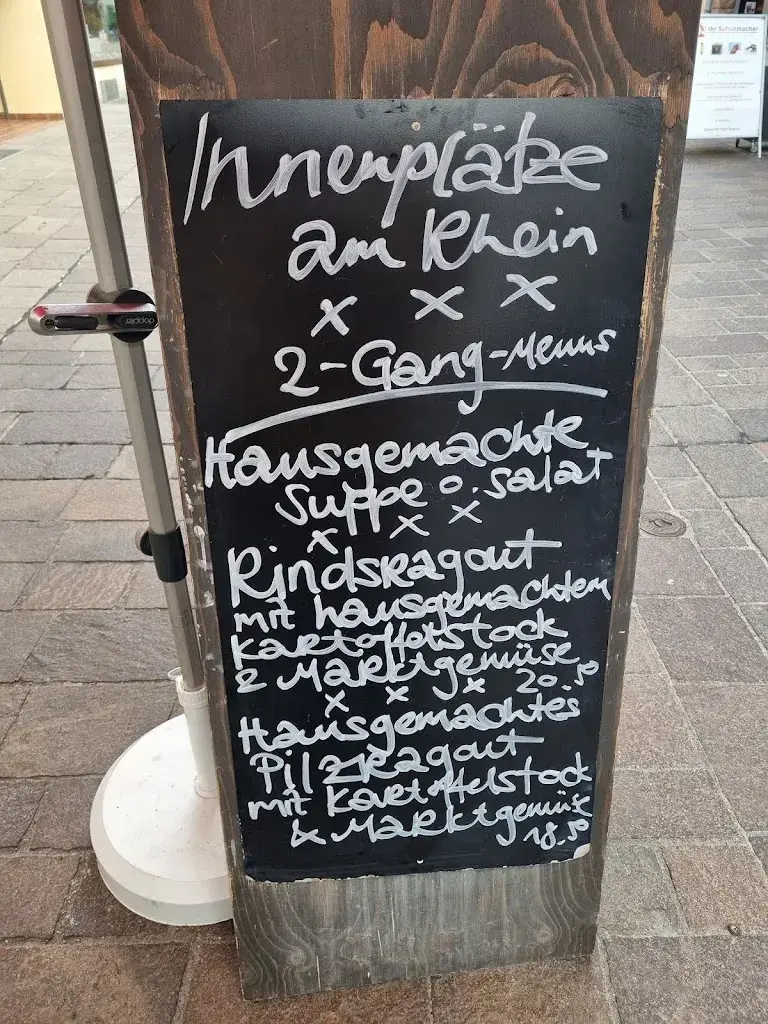 Innenplätze
am Rhein
x x x
2-Gang-Menus
Hausgemachte
Suppe o. Salat
x x x
Rindsragout
mit hausgemachtem
Kartoffelstock
& Marktgemüse
x x x 20.50
Hausgemachtes
Pilzragout
mit Kartoffelstock
& Marktgemüse
18.50
doppler
Ihr Schuhmacher